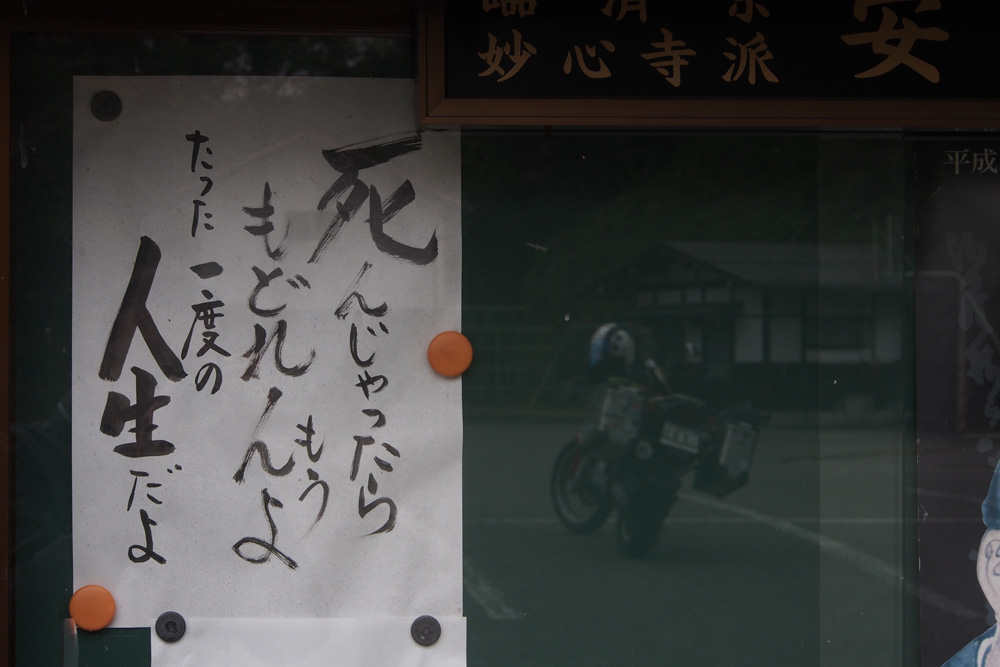 臨済宗
妙心寺派
安
死んじゃったら
もう
もどれんよ
たった一度の
人生だよ
平成